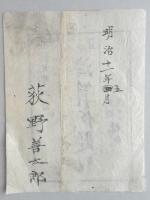 明治十一年五月
荻野善太郎